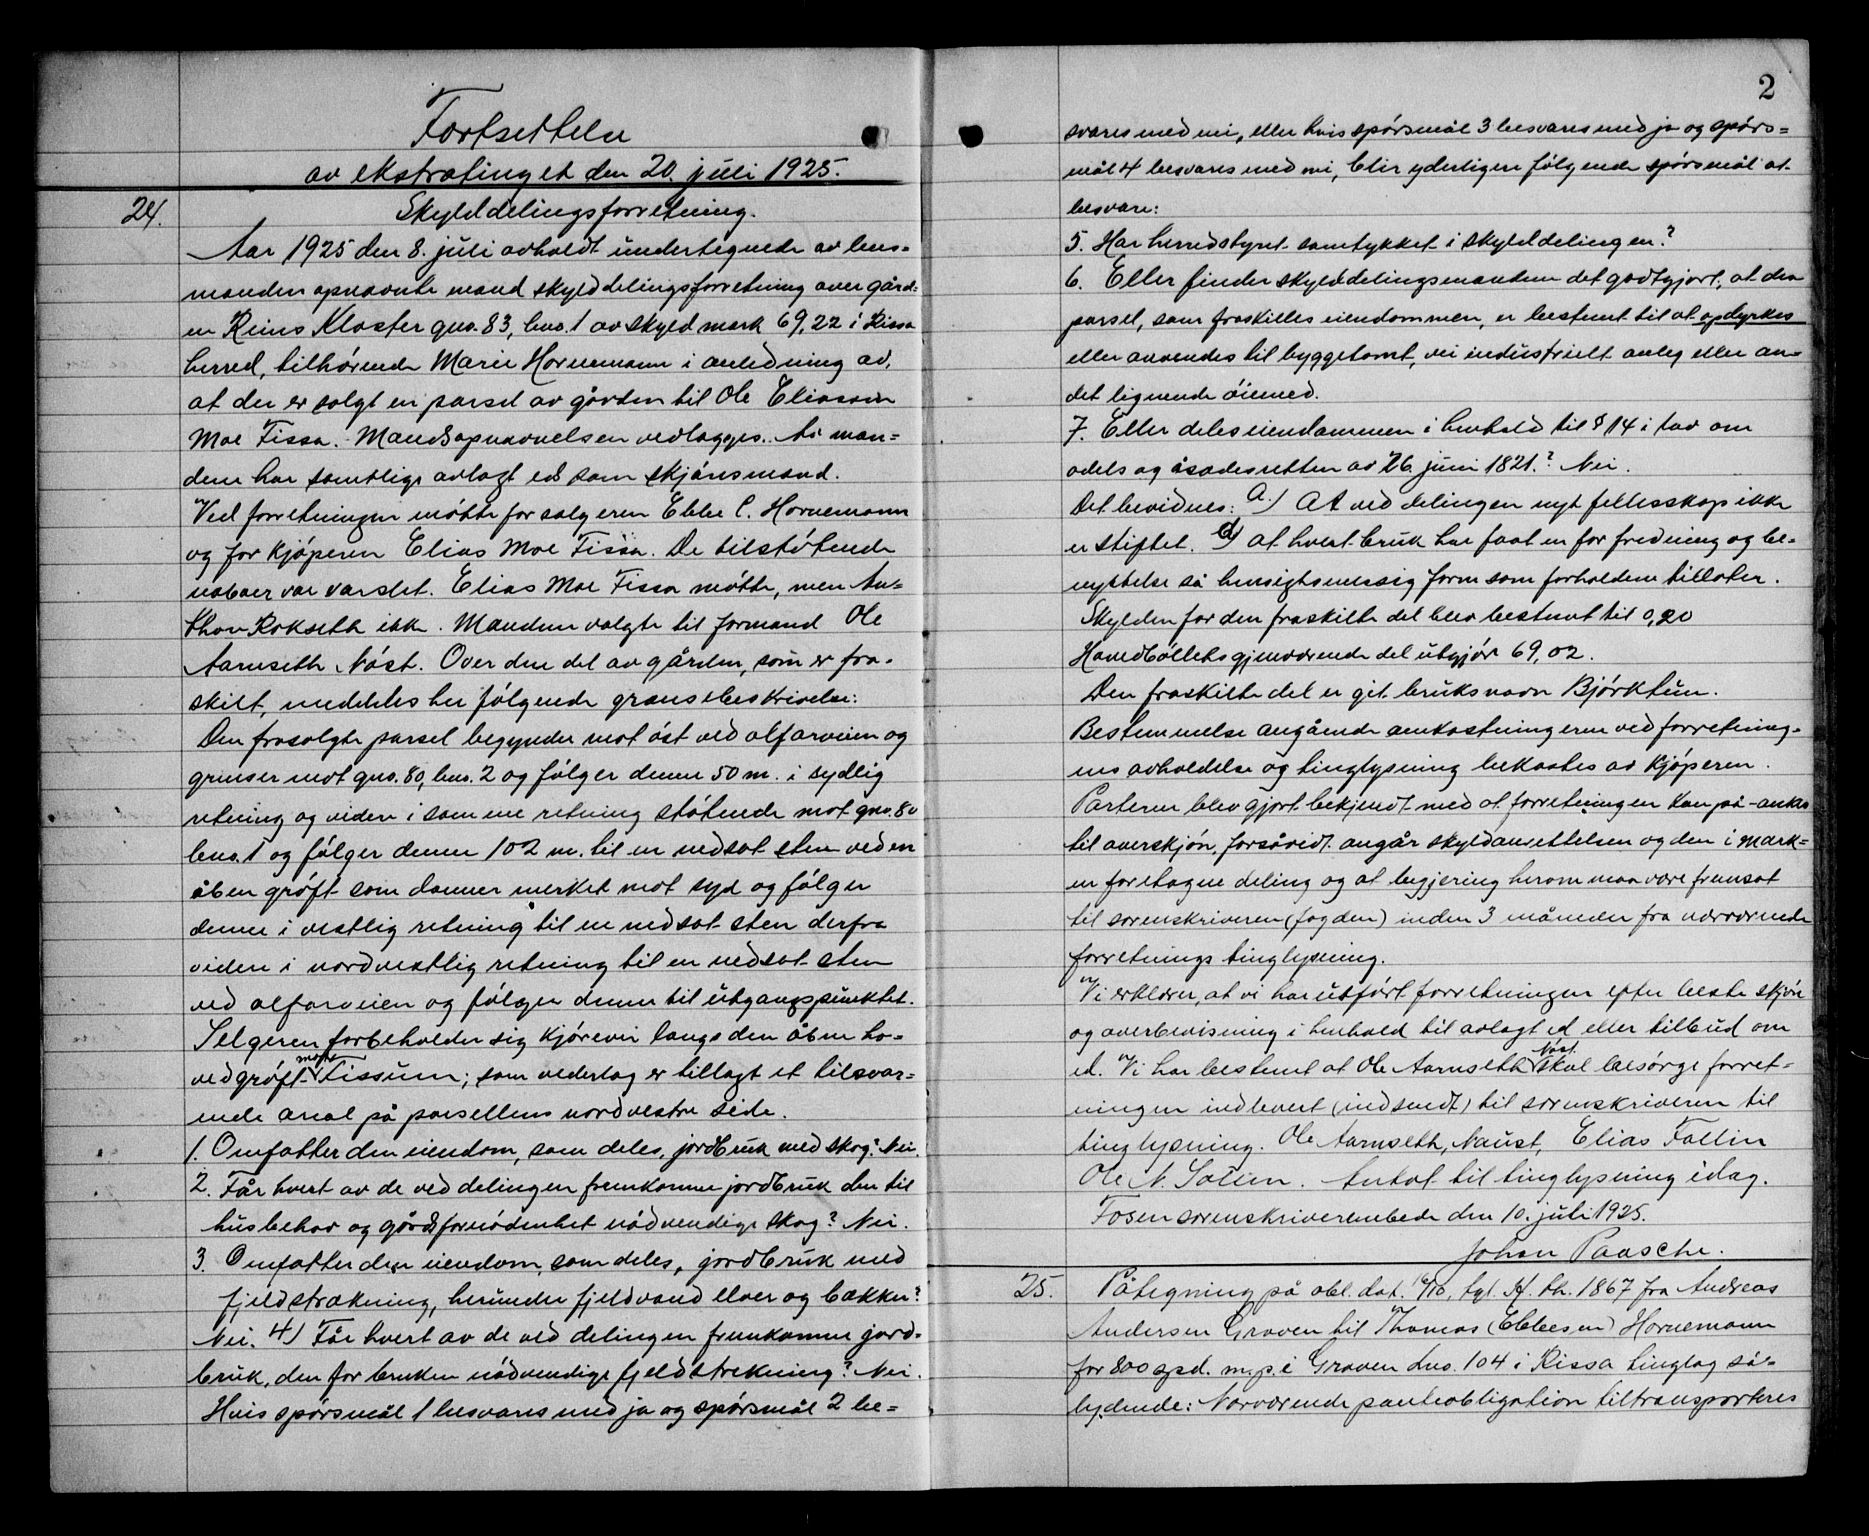 Fortsettelse
av ekstratinget den 20. juli 1925.
24. Skylddelingsforretning.
Aar 1925 den 8. juli avholdt undertegnede av lens-
manden opnævnte mænd skylddelingsforretning over gård-
en Reins Kloster gno. 83, bno. 1 av skyld mark 69,22 i Rissa
herred, tilhørende Marie Hornemann i anledning av,
at der er solgt en parsel av gården til Ole Eliassen
Moe Fissa. Mandsopnævnelsen vedlægges. Av mæn-
dene har samtlige avlagt ed som skjønsmænd.
Ved forretningen møtte for selgeren Ebbe C. Hornemann
og for kjøperen Elias Moe Fissa. De tilstøtende
naboer var varslet. Elias Moe Fissa møtte, men An-
thon Rokseth ikke. Mændene valgte til formand Ole
Aarnseth Nøst. Over den del av gården, som er fra-
skilt, meddeles her følgende grænsebeskrivelse:
Den frasolgte parsel begynder mot øst ved alfarveien og
grenser mot gno. 80, bno. 2 og følger denne 50 m. i sydlig
retning og videre i samme retning støtende mot gno. 80
bno. 1 og følger denne 102 m. til en nedsat sten ved en
åben grøft som danner merket mot syd og følger
denne i vestlig retning til en nedsat sten derfra
videre i nordvestlig retning til en nedsat sten
ved alfarveien og følger denne til utgangspunktet.
Selgeren forbeholder sig kjørevei langs den åbne ho-
vedgrøft mot Fissum; som vederlag er tillagt et tilsvar-
ende areal på parsellens nordvestre side.
1. Omfatter den eiendom, som deles, jordbruk med skog? Nei.
2. Får hvert av de ved delingen fremkomne jordbruk den til
husbehov og gårdsfornødenhet nødvendige skog? Nei.
3. Omfatter den eiendom, som deles, jordbruk med
fjeldstrækning, herunder fjeldvand elver og bækker?
Nei. 4) Får hvert av de ved delingen fremkomne jord-
bruk, den for bruken nødvendige fjeldstrekning? Nei.
Hvis spørsmål 1 besvares med ja og spørsmål 2 be-
2
svares med nei, eller hvis spørsmål 3 besvares med ja og spørs-
mål 4 besvares med nei, blir yderligere følgende spørsmål at
besvare:
5. Har herredstyret samtykket i skylddelingen?
6. Eller finder skylddelingsmændene det godtgjort, at den
parsel, som fraskilles eiendommen, er bestemt til at opdyrkes
eller anvendes til byggetomt, vei industrielt anleg eller an-
det lignende øiemed.
7. Eller deles eiendommen i henhold til § 14 i lov om
odels og åsædesretten av 26. juni 1821.? Nei.
Det bevidnes: a.) At ved delingen nyt fellesskap ikke
er stiftet. b) at hvert bruk har faat en for fredning og be-
nyttelse så hensigtsmessig form som forholdene tillater.
Skylden for den fraskilte del blev bestemt til 0,20
Hovedbøllets gjenværende del utgjør 69,02.
Den fraskilte del er git bruksnavn Bjørktun.
Bestemmelse angående omkostningerne ved forretning-
ens avholdelse og tinglysning bekostes av kjøperen.
Parterne blev gjort bekjendt med at forretningen kan på-ankes
til overskjøn, forsåvidt angår skyldansettelsen og den i mark-
en foretagne deling og at begjering herom maa være fremsat
til sorenskriveren (fogden) inden 3 måneder fra nærværende
forretnings tinglysning.
Vi erklærer, at vi har utført forretningen efter beste skjøn
og overbevisning i henhold til avlagt ed eller tilbud om
ed. Vi har bestemt at Ole Aarnseth Nøst skal besørge forret-
ningen indlevert (indsendt) til sorenskriveren til
tinglysning. Ole Aarnseth, Naust, Elias Fallin
Ole N. Solem. Antat til tinglysning idag.
Fosen sorenskriverembede den 10. juli 1925.
Johan Paasche.
25. Påtegning på obl. dat. 16/10, tgl. H. th. 1867 fra Andreas
Andersen Graven til Thomas (Ebbesen) Hornemann
for 800 spd. m. p. i Graven Lno. 104 i Rissa tinglag så-
lydende: Nærværende panteobligation tiltransporteres